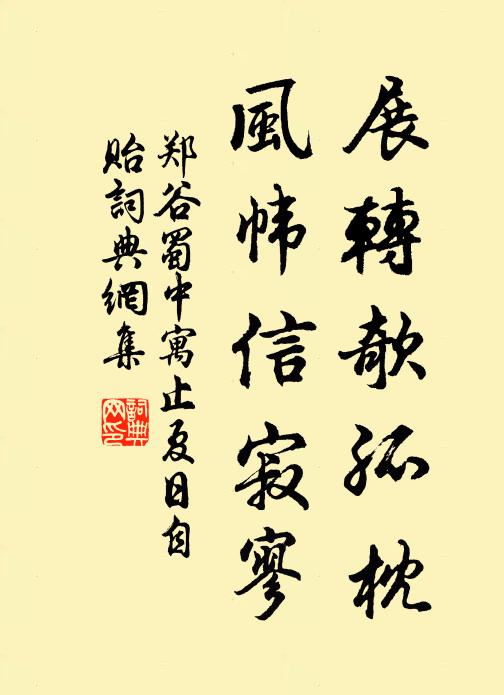 展轉欹孤枕
風帏信寂寥
郑谷蜀中寓止夏日自
贻詞典網集
詞典
网印